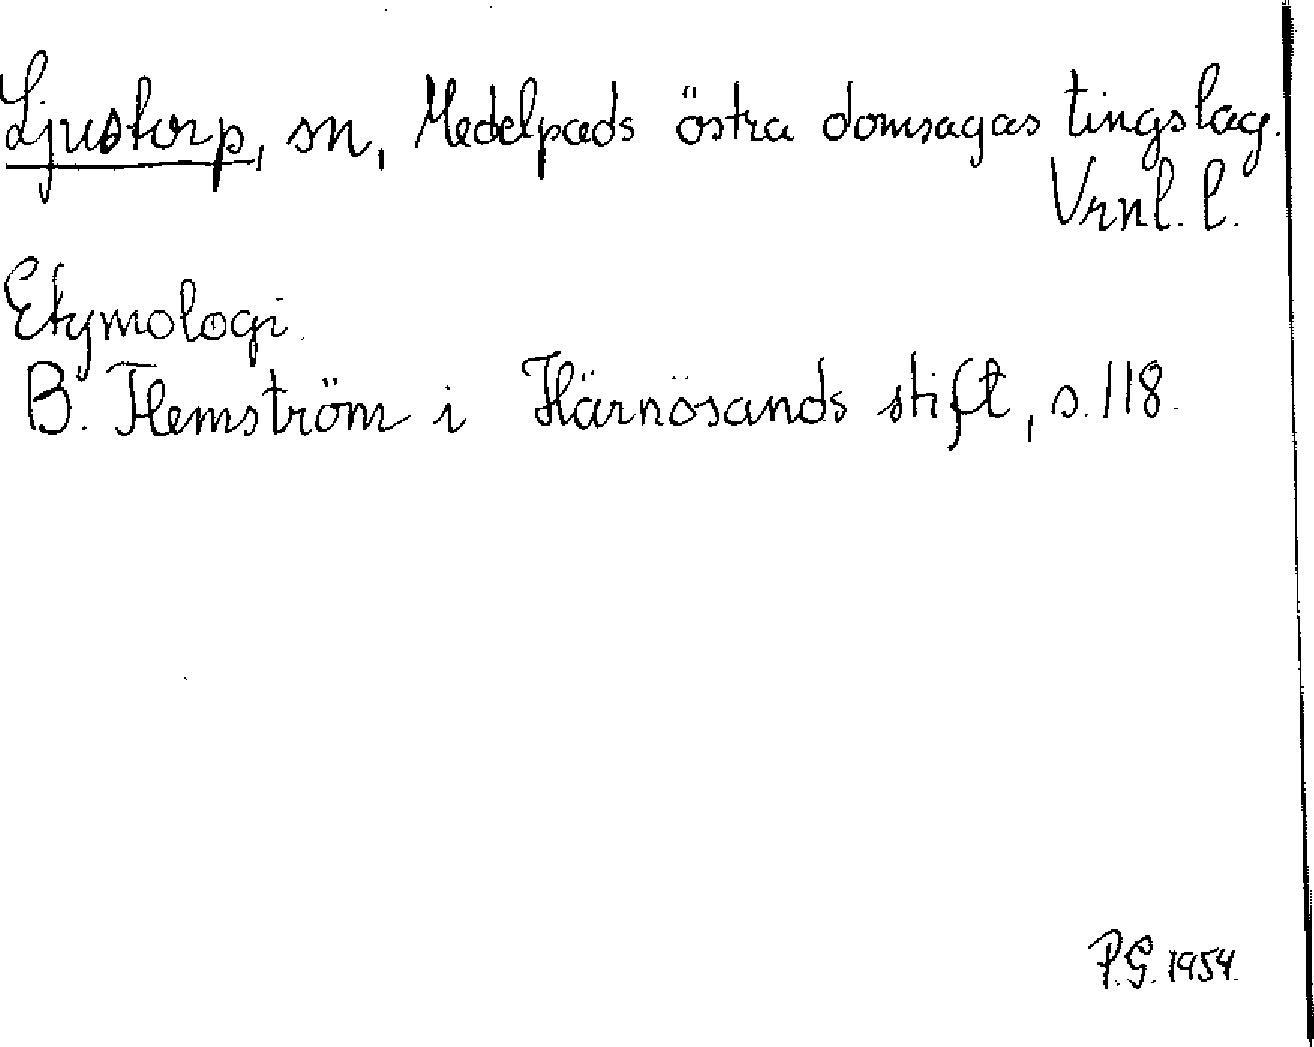 Ljustorp, sn, Medelpads östra domsagas tingslag.
Vrnl. l.
Etymologi.
B. Hemström i Härnösands stift, s. 118.
P.G. 1954.